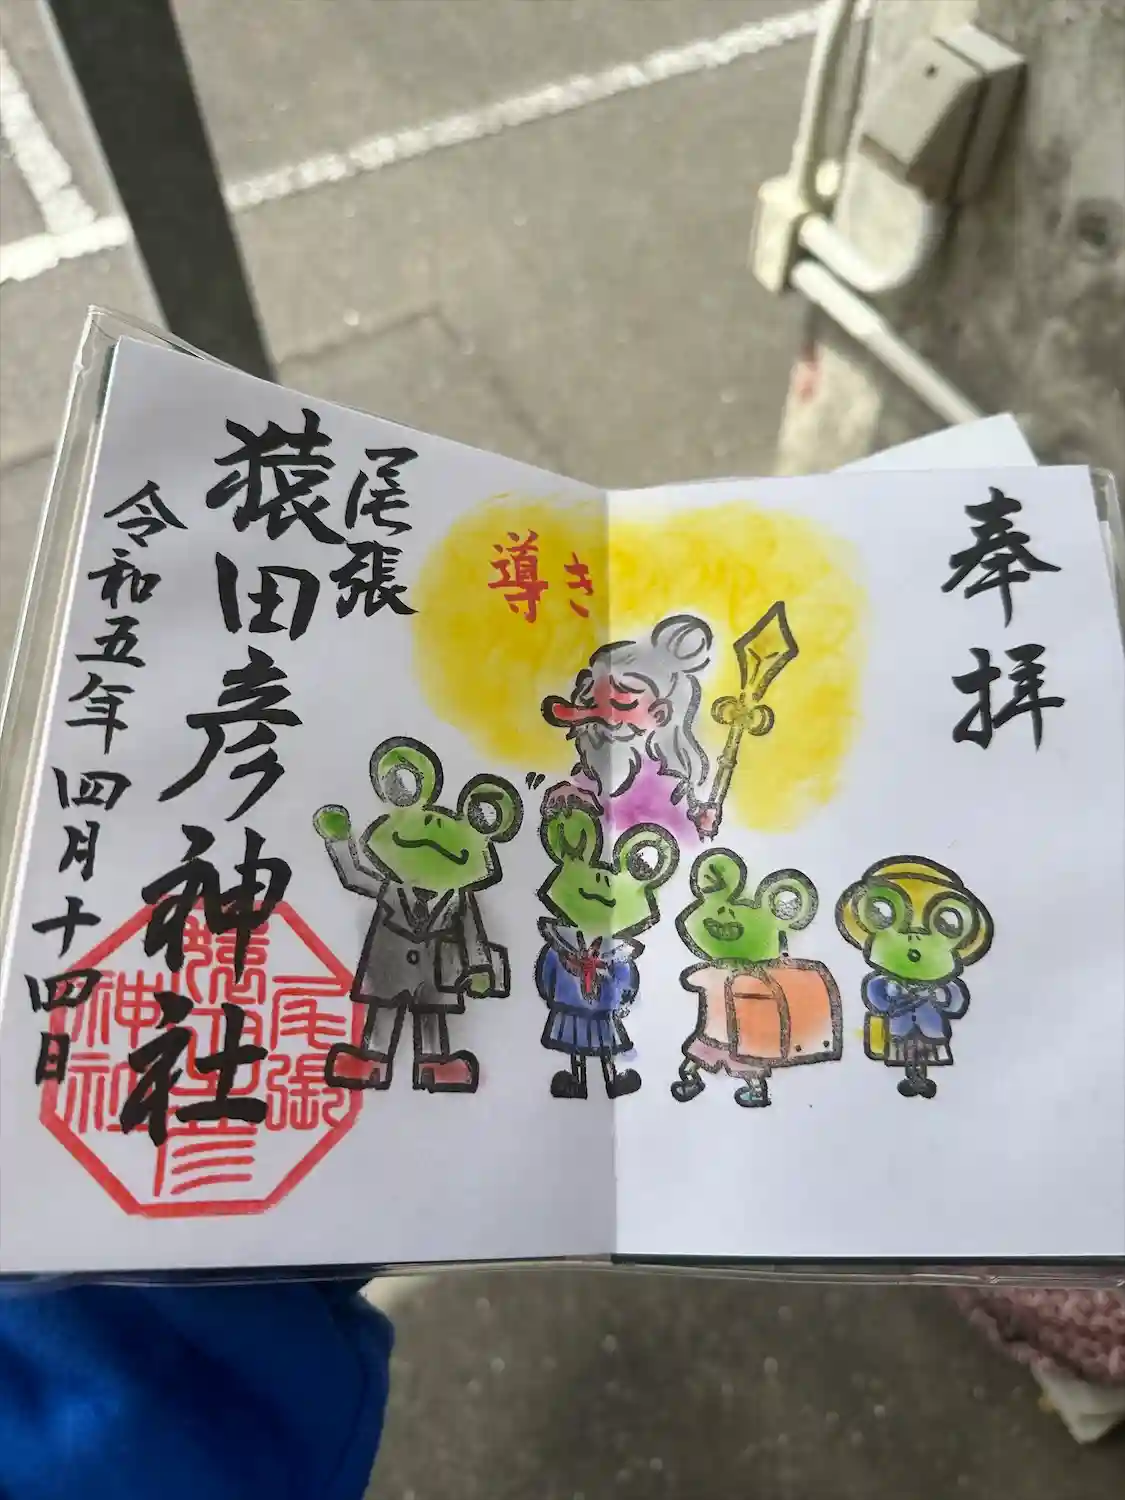 奉拝
導き
尾張
猿田彦神社
令和五年四月十四日
尾張
猿田彦
神社